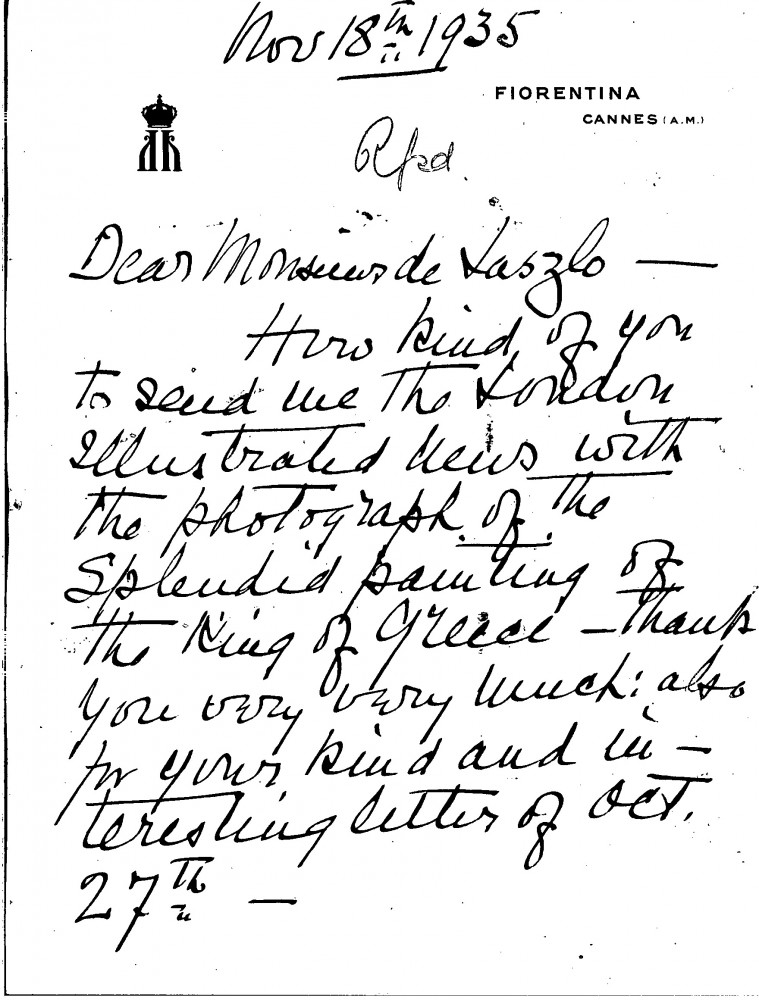 Nov 18th 1935
FIORENTINA
CANNES (A.M.)
Rfed.
Dear Monsieur de Laszlo —
How kind of you
to send me the London
Illustrated News with
the photograph of the
splendid painting of
the King of Greece — thank
you very very much: also
for your kind and in-
teresting letter of Oct.
27th —